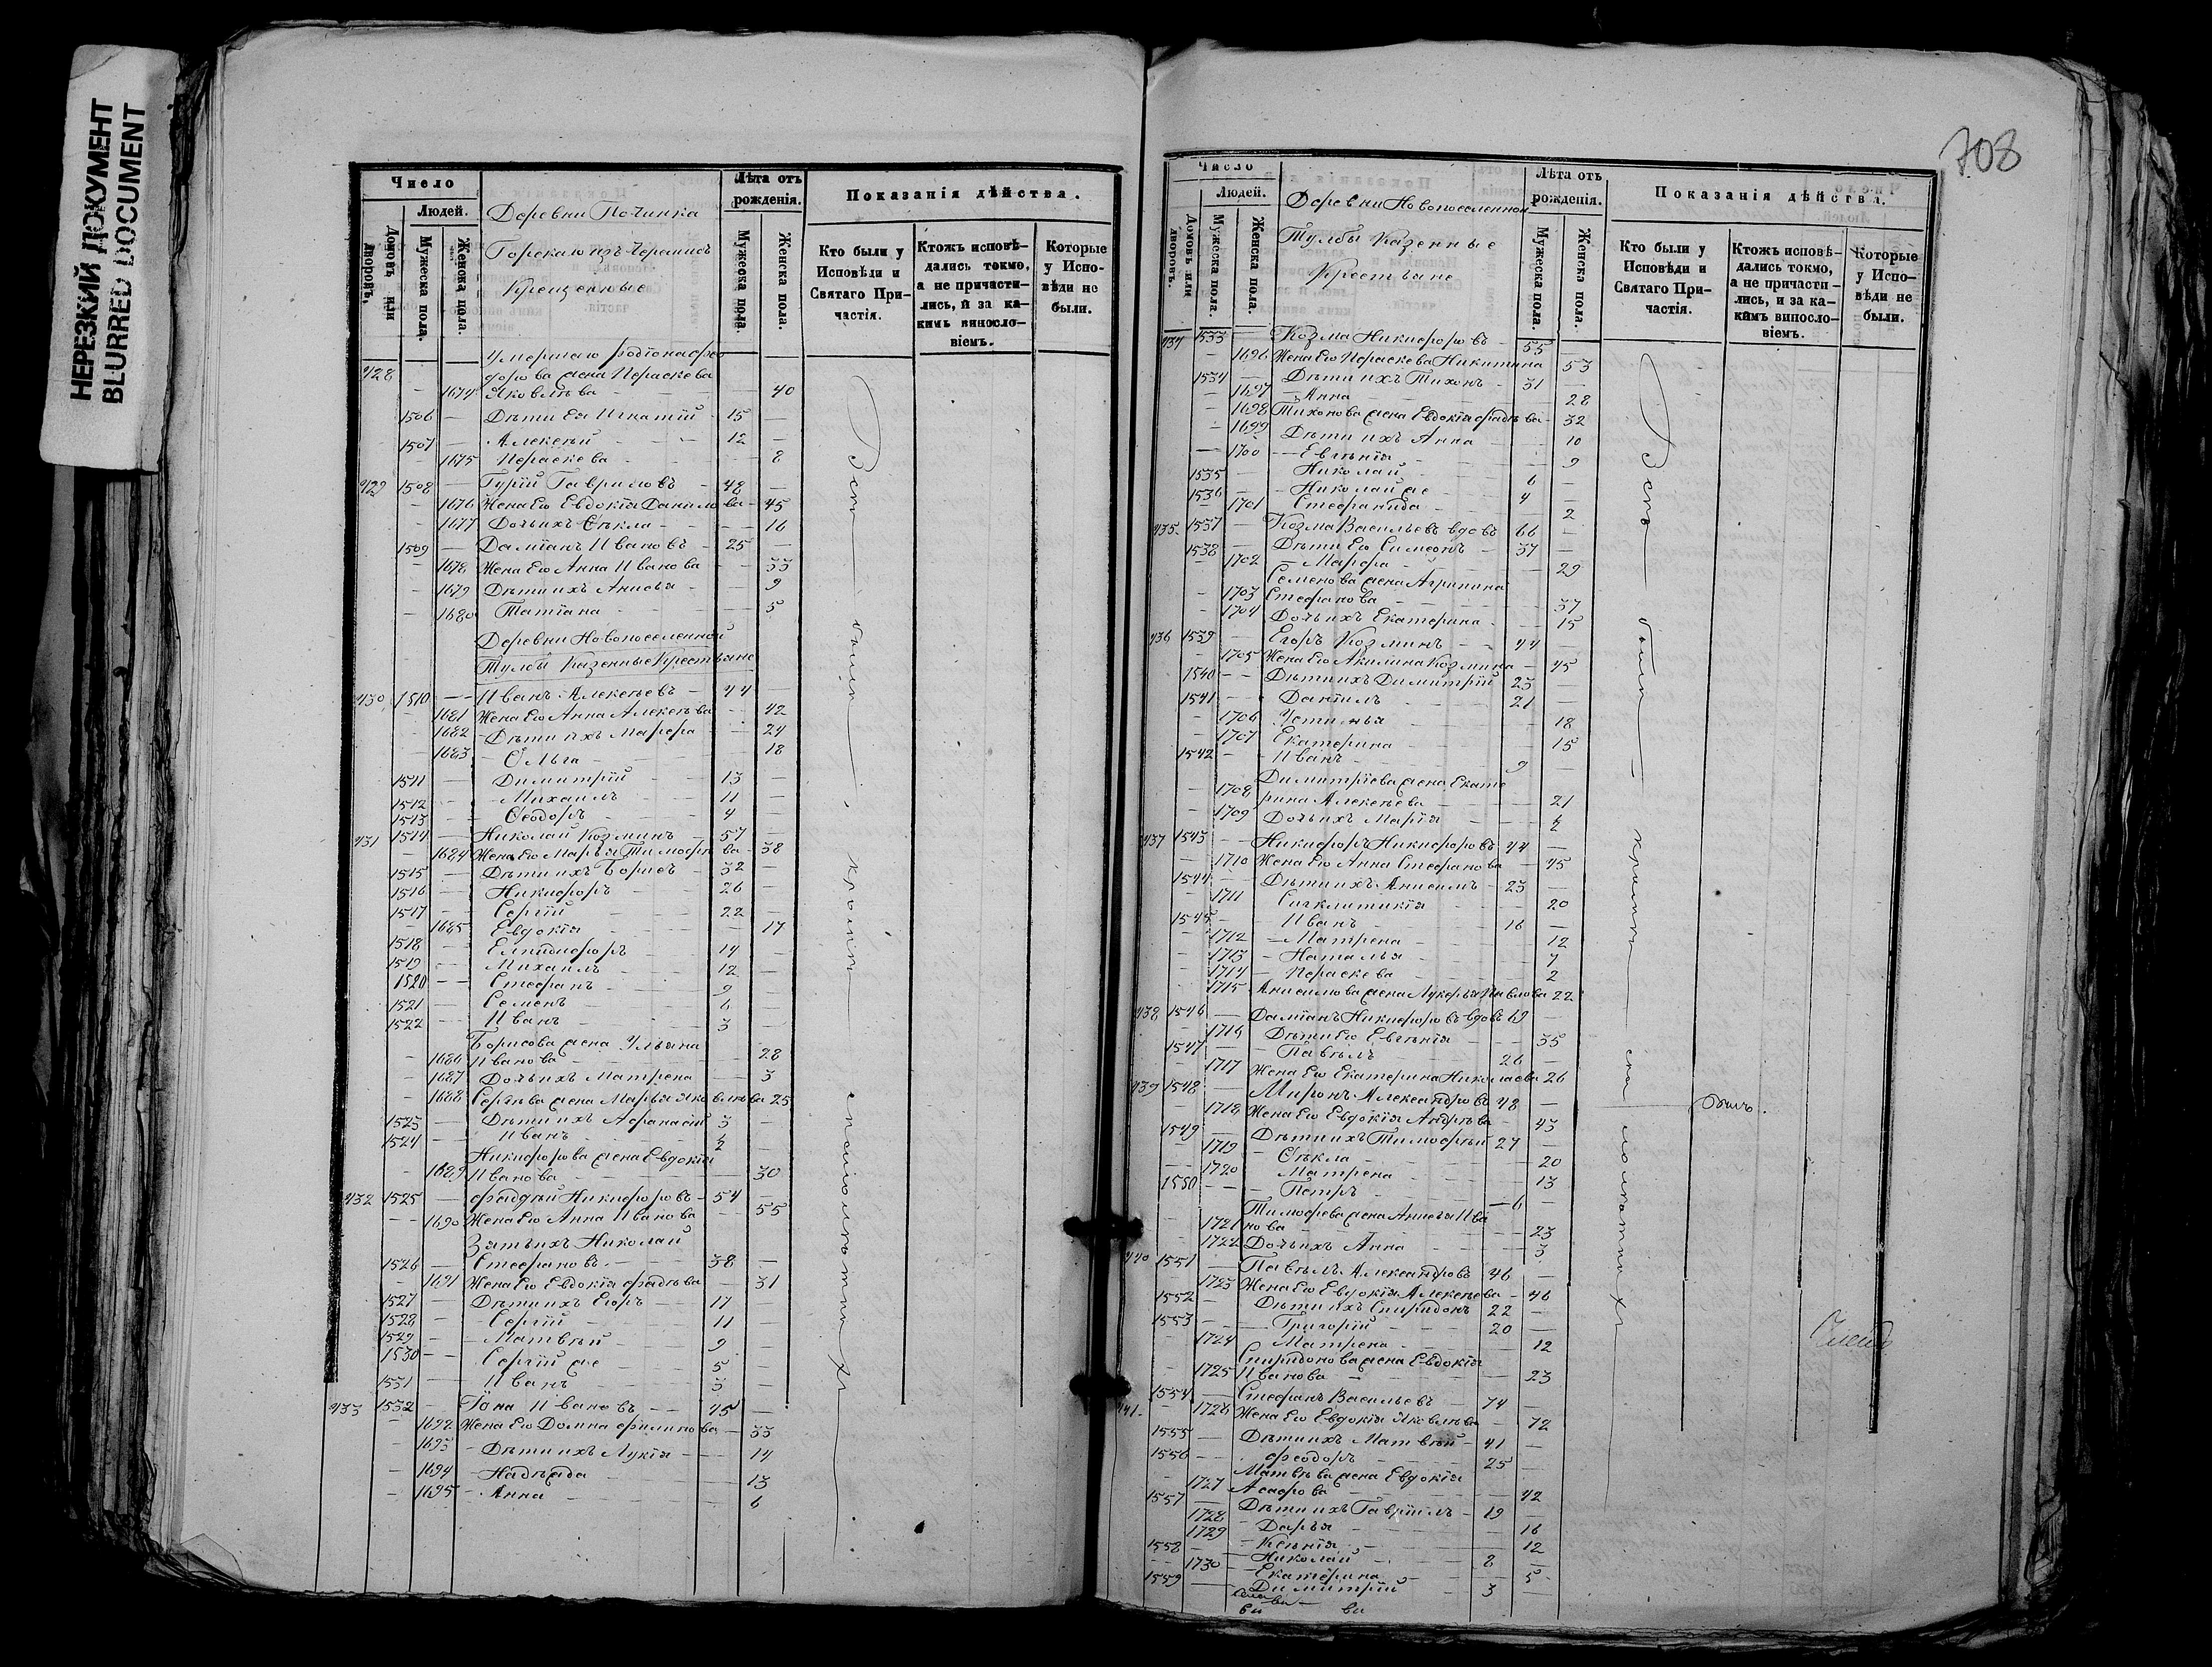 НЕРЕЗКИЙ ДОКУМЕНТ
BLURRED DOCUMENT
Число
Людей.
Домовъ или дворовъ.
Мужеска пола.
Женска пола.
Деревни Починка
Крещенные
Лѣта отъ рожденія.
Мужеска пола.
Женска пола.
Показанія дѣйства.
Кто были у Исповѣди и Святаго Причастія.
Ктожъ исповѣдались токмо, а не причастились, и за какимъ винословіемъ.
Которые у Исповѣди не были.
Умершаго Родіона Фео
428 дорова жена Параскева
1674 Яковлева 40
1506 Дѣти ея Игнатій 15
1507 Алексѣй 12
1675 Параскева 8
429 1508 Гурій Гавриловъ 48
1676 Жена его Евдокія Данилова 45
1677 Дочь ихъ Ѳекла 16
1509 Даміанъ Ивановъ 25
1678 Жена его Анна Иванова 33
1679 Дѣти ихъ Анисья 9
1680 Татіана 5
Деревни Новопоселенной
Тулбы Казенные Крестьяне
430 1510 Иванъ Алексѣевъ 44
1681 Жена его Анна Алексѣева 42
1682 Дѣти ихъ Марфа 24
1683 Ольга 18
1511 Димитрій 13
1512 Михаилъ 11
1513 Ѳеодоръ 4
431 1514 Николай Козминъ 57
1684 Жена его Марья Тимофеева 38
1515 Дѣти ихъ Борисъ 32
1516 Никифоръ 26
1517 Сергій 22
1685 Евдокія 17
1518 Елпидифоръ 14
1519 Михаилъ 12
1520 Стефанъ 9
1521 Семенъ 6
1522 Иванъ 3
Борисова жена Ульяна
1686 Иванова 28
1687 Дочь ихъ Матрена 3
1688 Сергѣева жена Марья Яковлева 25
1523 Дѣти ихъ Афанасій 3
1524 Иванъ ½
Никифорова жена Евдокія
1689 Иванова 30
432 1525 Фаддѣй Никифоровъ 54
1690 Жена его Анна Иванова 55
Зять ихъ Николай
1526 Стефановъ 38
1691 Жена его Евдокія Фадѣева 31
1527 Дѣти ихъ Егоръ 17
1528 Сергій 11
1529 Матвѣй 9
1530 Сергій же 5
1531 Иванъ 3
433 1532 Іона Ивановъ 45
1692 Жена его Домна Филипова 33
1693 Дѣти ихъ Лукія 14
1694 Надѣжда 13
1695 Анна 6
Всѣ были
708
Число
Людей.
Домовъ или дворовъ.
Мужеска пола.
Женска пола.
Деревни Новопоселенной
Тулбы Казенные
Крестьяне
Лѣта отъ рожденія.
Мужеска пола.
Женска пола.
Показанія дѣйства.
Кто были у Исповѣди и Святаго Причастія.
Ктожъ исповѣдались токмо, а не причастились, и за какимъ винословіемъ.
Которые у Исповѣди не были.
434 1533 Козма Никифоровъ 55
1696 Жена его Параскева Никитина 53
1534 Дѣти ихъ Тихонъ 31
1697 Анна 28
1698 Тихонова жена Евдокія Фадѣева 32
1699 Дѣти ихъ Анна 10
1700 Евгѣнія 9
1535 Николай 6
1536 Николай же 4
1701 Стефанида 2
435 1537 Козма Васильевъ вдовъ 66
1538 Дѣти его Симеонъ 37
1702 Марфа 29
Семенова жена Агрипина
1703 Стефанова 37
1704 Дочь ихъ Екатерина 15
436 1539 Егоръ Козминъ 44
1705 Жена его Акилина Козмина 45
1540 Дѣти ихъ Димитрій 23
1541 Даніилъ 21
1706 Устинья 18
1707 Екатерина 15
1542 Иванъ 9
Димитріева жена Екате
1708 рина Алексѣева 21
1709 Дочь ихъ Марія ½
437 1543 Никифоръ Никифоровъ 44
1710 Жена его Анна Стефанова 45
1544 Дѣти ихъ Анисимъ 23
1711 Сигклитикія 20
1545 Иванъ 16
1712 Матрена 12
1713 Наталья 7
1714 Параскева 2
1715 Анисимова жена Лукерья Павлова 22
438 1546 Даміанъ Никифоровъ вдовъ 69
1716 Дѣти его Евгѣнія 35
1547 Павѣлъ 26
1717 Жена его Екатерина Николаева 26
439 1548 Миронъ Александровъ 48
1718 Жена его Евдокія Андрѣева 43
1549 Дѣти ихъ Тимофѣй 27
1719 Ѳекла 20
1720 Матрена 13
1550 Петръ 6
Тимофеева жена Анисья Ива
1721 нова 23
1722 Дочь ихъ Анна 3
440 1551 Павѣлъ Александровъ 46
1723 Жена его Евдокія Алексѣева 46
1552 Дѣти ихъ Спиридонъ 22
1553 Григорій 20
1724 Матрена 12
Спиридонова жена Евдокія
1725 Иванова 23
441 1554 Стефанъ Васильевъ 74
1726 Жена его Евдокія Яковлева 72
1555 Дѣти ихъ Матвѣй 41
1556 Феодоръ 25
Матвѣева жена Евдокія
1727 42
1557 Дѣти ихъ Гавріилъ 19
1728 Дарья 16
1729 Ксѣнія 12
1558 Николай 8
1730 Екатерина 5
1559 Димитрій 3
Всѣ были